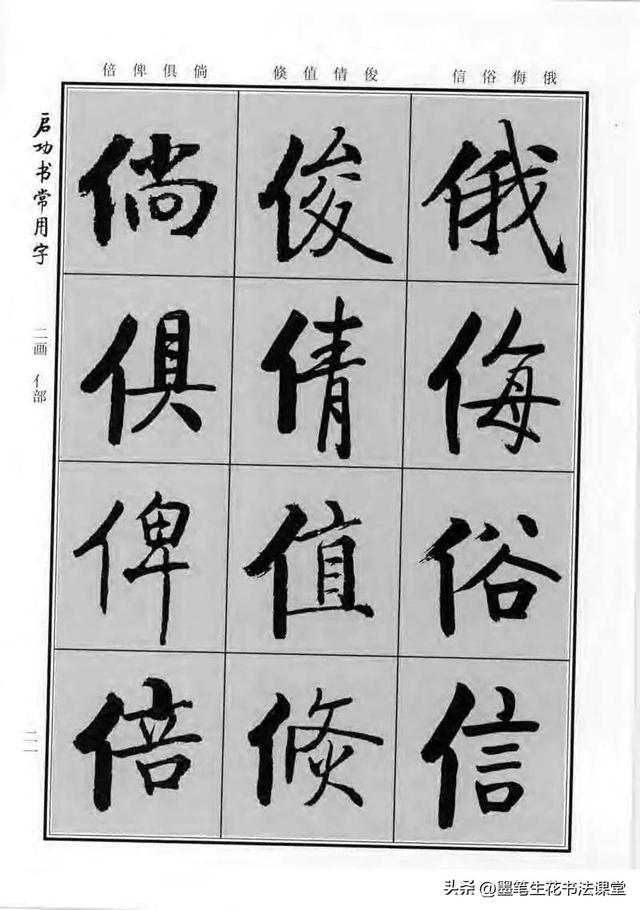 俄侮俗信
俊倩值倐
倘俱俾倍
俄侮俗信
俊倩值倐
倘俱俾倍
启功书常用字
二画 亻部
二一
头条 @墨笔生花书法课堂